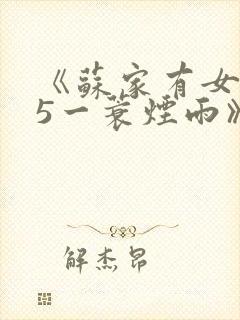 《蘇家有女
5一蓑煙雨》
解杰昂